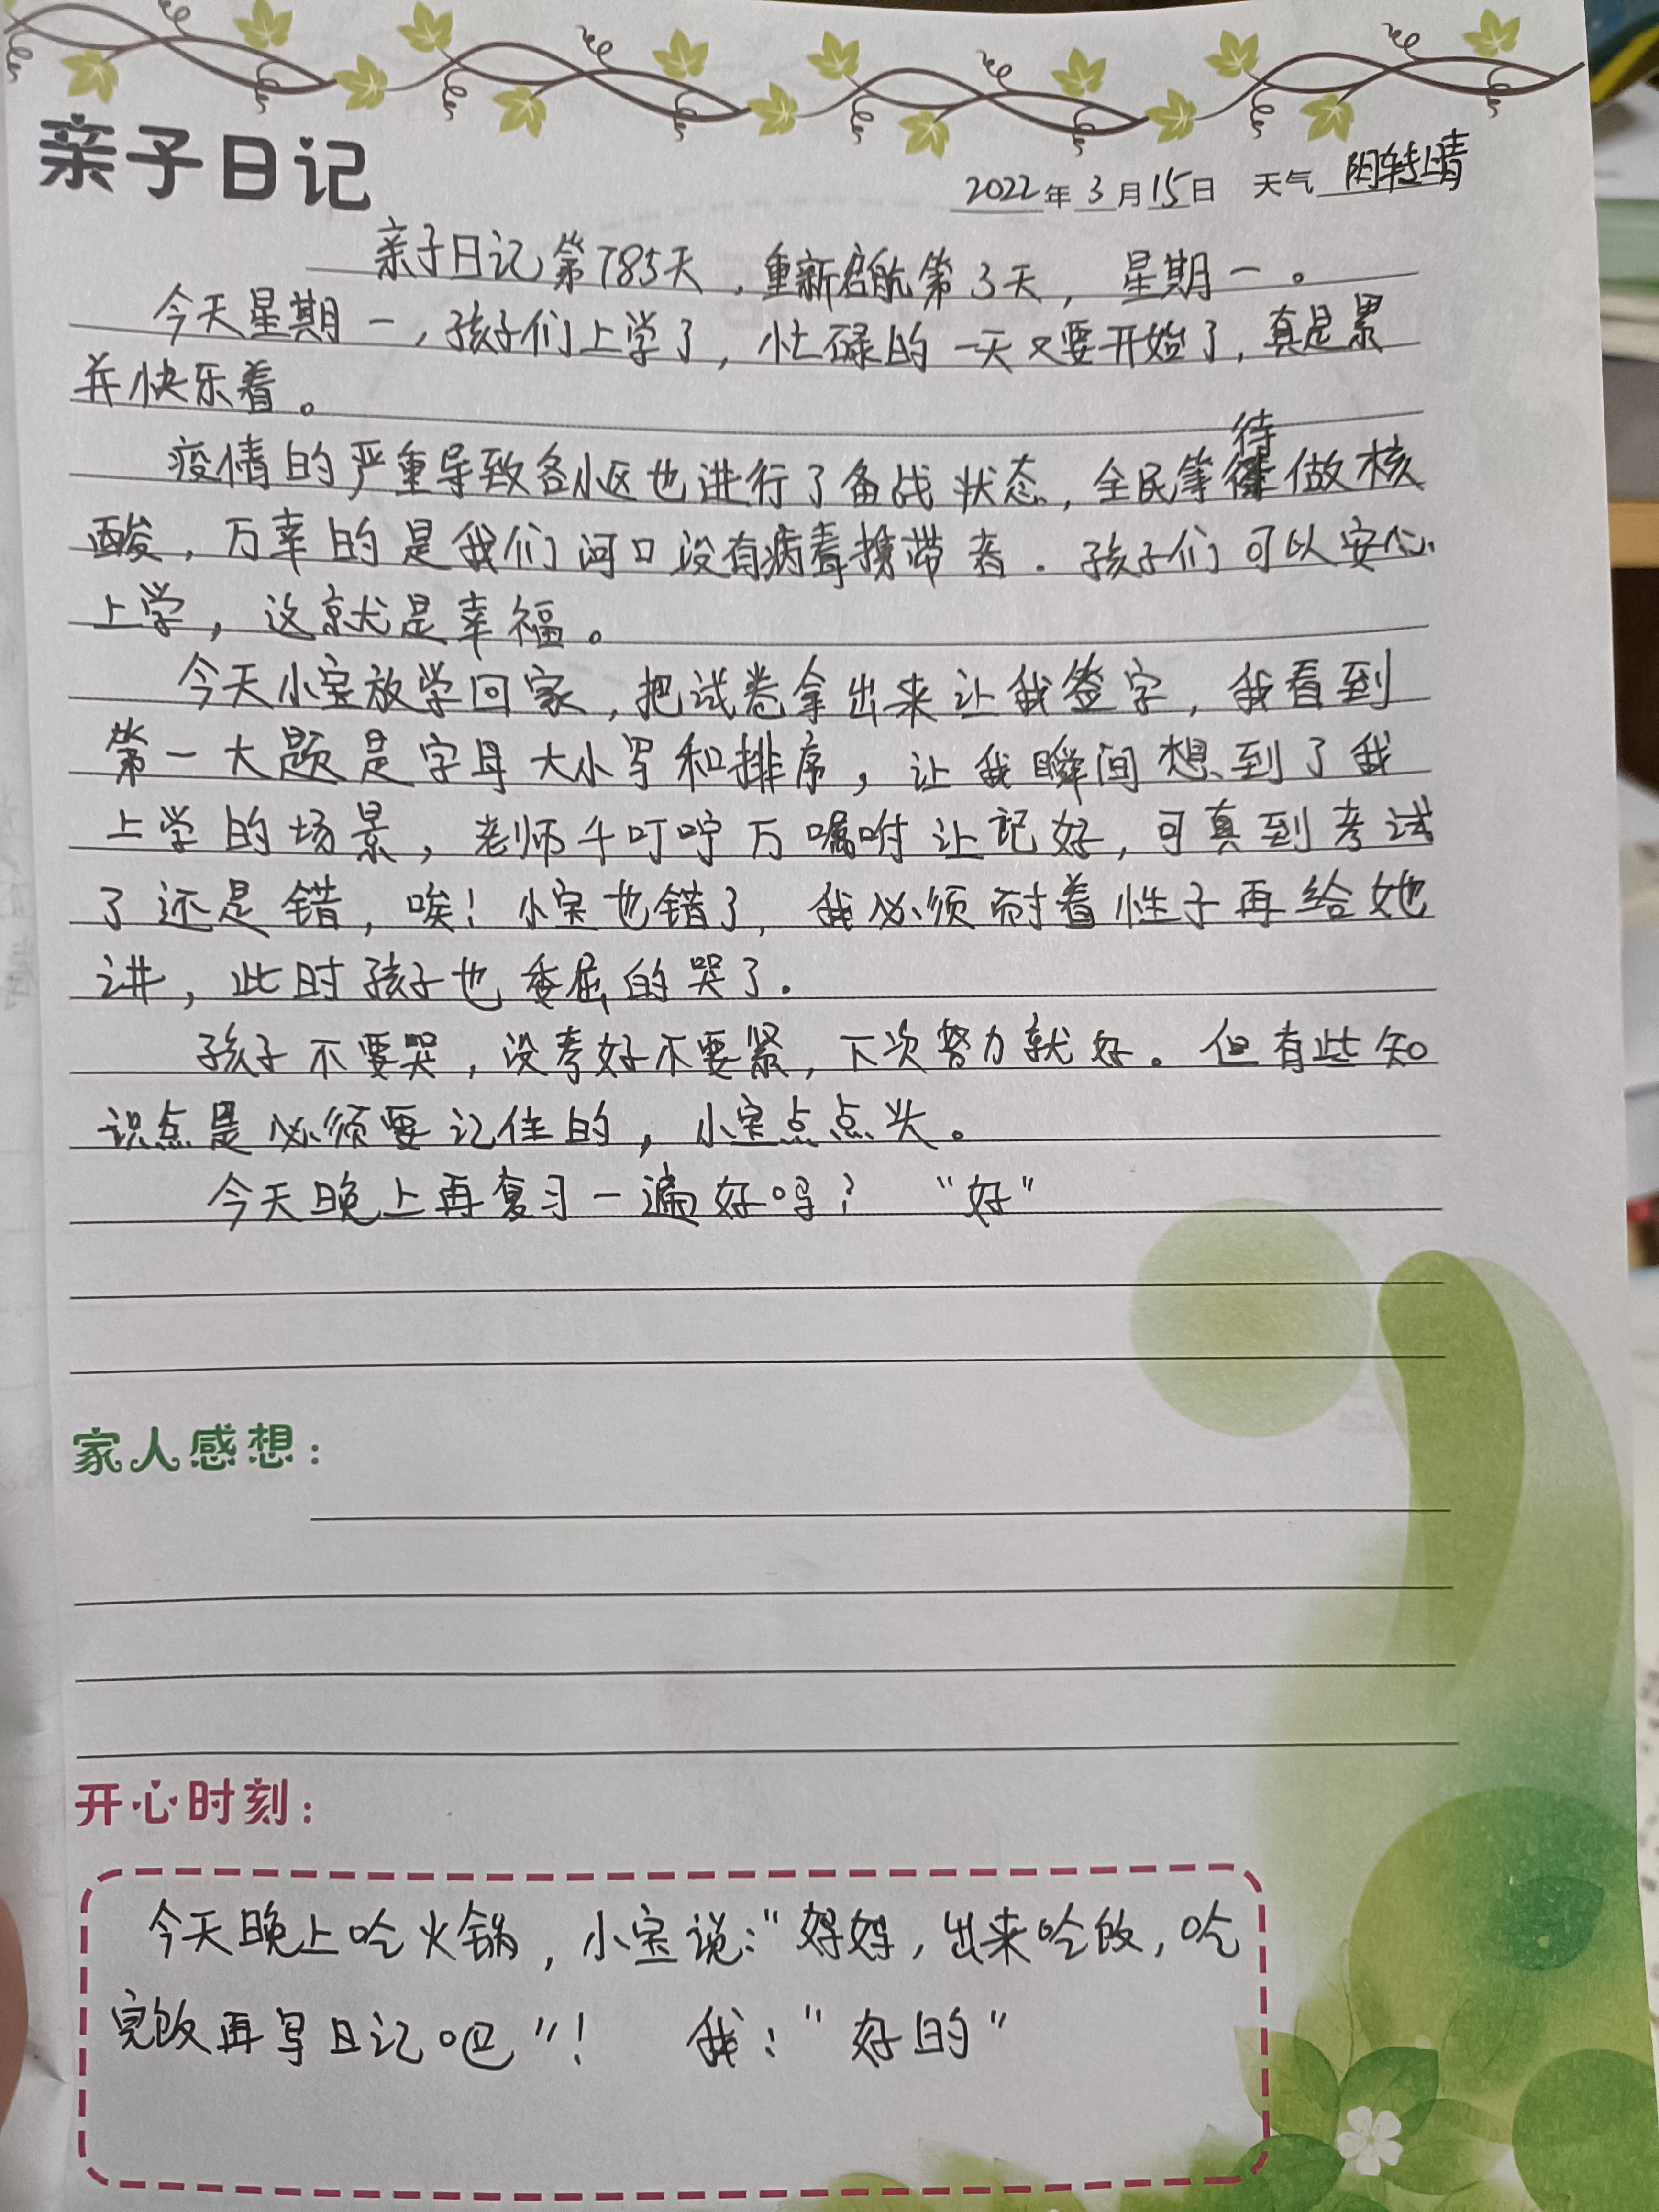 亲子日记
2022年3月15日 天气 阴转晴
亲子日记第785天，重新启航第3天，星期一。
今天星期一，孩子们上学了，忙碌的一天又要开始了，真是累
并快乐着。
疫情的严重导致各小区也进行了备战状态，全民等待做核
酸，万幸的是我们河口没有病毒携带者．孩子们可以安心
上学，这就是幸福。
今天小宝放学回家，把试卷拿出来让我签字，我看到
第一大题是字母大小写和排序，让我瞬间想到了我
上学的场景，老师千叮咛万嘱咐让记好，可真到考试
了还是错，唉！小宝也错了，我必须耐着性子再给她
讲，此时孩子也委屈的哭了．
孩子不要哭，没考好不要紧，下次努力就好。但有些知
识点是必须要记住的，小宝点点头。
今天晚上再复习一遍好吗？“好”
家人感想：
开心时刻：
今天晚上吃火锅，小宝说：“妈妈，出来吃饭，吃
完饭再写日记吧”！ 我：“好的”